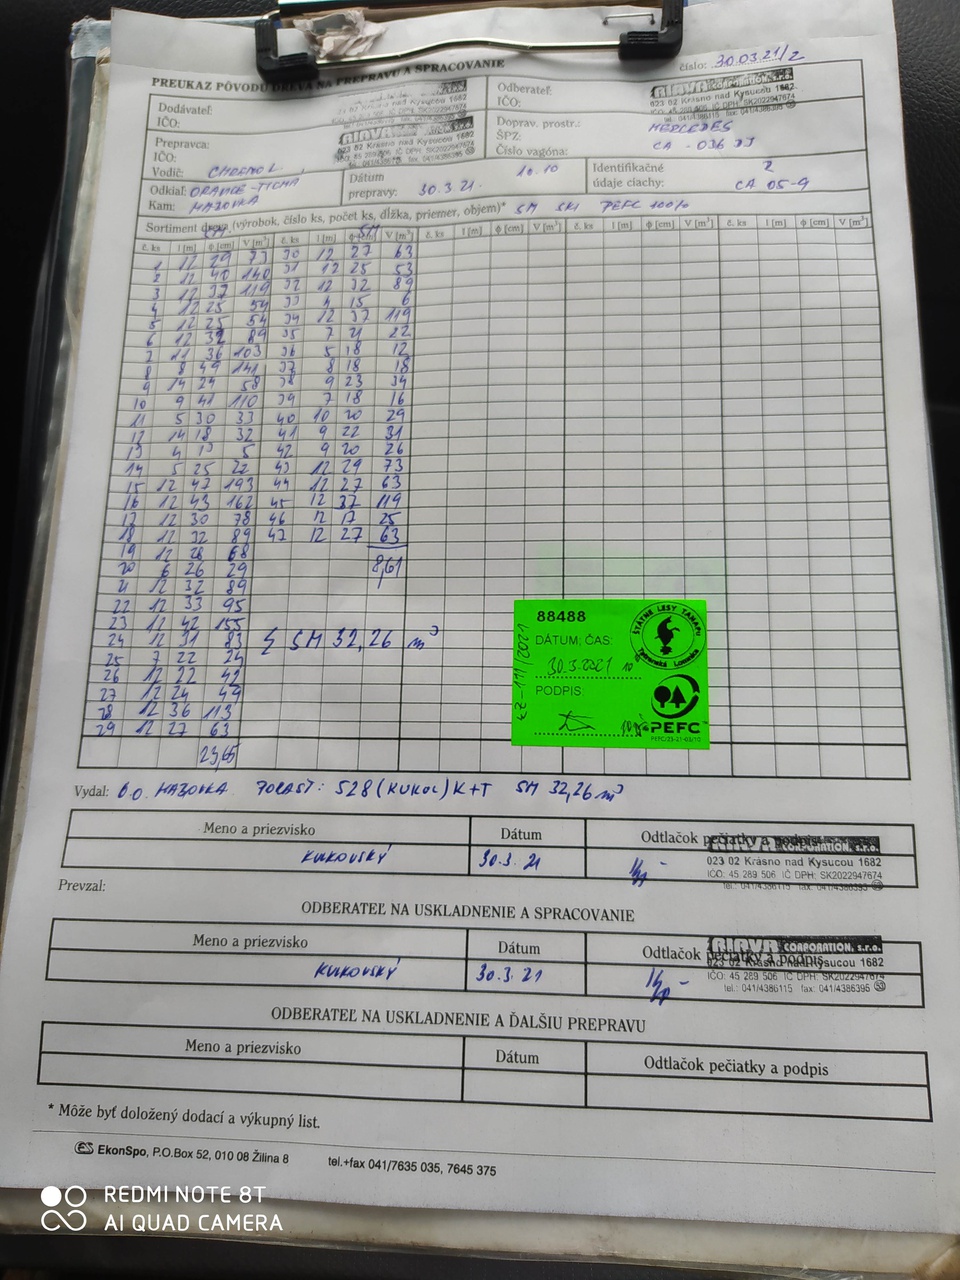 číslo: 30.03.21/2
PREUKAZ PÔVODU DREVA NA PREPRAVU A SPRACOVANIE
Dodávateľ:
IČO:
Odberateľ:
IČO:
023 02 Krásno nad Kysucou 1682
Prepravca:
IČO:
Vodič:
023 02 Krásno nad Kysucou 1682
Doprav. prostr.: MERCEDES
ŠPZ:
Číslo vagóna: CA - 036 DJ
Odkiaľ:
Kam: HÁJOVKA
Dátum
prepravy: 30.3.21. 10.10
Identifikačné
údaje ciachy: 2
CA 05-9
Sortiment dreva (výrobok, číslo ks, počet ks, dĺžka, priemer, objem)* SM PEFC 100%
SM SM
č. ks l [m] ϕ [cm] V [m³] č. ks l [m] ϕ [cm] V [m³] č. ks l [m] ϕ [cm] V [m³] č. ks l [m] ϕ [cm] V [m³]
1 12 29 73 30 12 27 63
2 12 40 140 31 12 25 53
3 12 37 119 32 12 32 89
4 12 25 54 33 4 15 6
5 12 25 54 34 12 37 119
6 12 32 89 35 7 21 22
7 11 36 103 36 5 18 12
8 8 49 141 37 8 18 18
9 14 24 58 38 9 23 34
10 9 41 110 39 7 18 16
11 5 30 33 40 10 20 29
12 14 18 32 41 9 22 31
13 4 13 5 42 9 20 26
14 5 25 22 43 12 29 73
15 12 47 193 44 12 27 63
16 12 43 162 45 12 37 119
17 12 30 78 46 12 17 25
18 12 32 89 47 12 27 63
19 12 28 68
20 6 26 29 8,61
21 12 32 89
22 12 33 95
23 12 42 155
24 12 31 83 Σ SM 32,26 m³
25 7 22 24
26 12 22 42
27 12 24 49
28 12 36 113
29 12 27 63
23,65
88488
DÁTUM, ČAS:
30.3.2021 10
PODPIS:
ŠTÁTNE LESY TANAPU
Tatranská Lomnica
PEFC™
Vydal: B.O. HÁJOVKA PORAST: 528 (KUKOL) K+T SM 32,26 m³
Meno a priezvisko Dátum Odtlačok pečiatky a podpis
KULKOVSKÝ 30.3.21
RIAVA CORPORATION, s.r.o.
023 02 Krásno nad Kysucou 1682
IČO: 45 289 506 IČ DPH: SK2022947674
tel.: 041/4386115 fax: 041/4386395 53
Prevzal:
ODBERATEĽ NA USKLADNENIE A SPRACOVANIE
Meno a priezvisko Dátum Odtlačok pečiatky a podpis
KULKOVSKÝ 30.3.21
RIAVA CORPORATION, s.r.o.
023 02 Krásno nad Kysucou 1682
IČO: 45 289 506 IČ DPH: SK2022947674
tel.: 041/4386115 fax: 041/4386395 53
ODBERATEĽ NA USKLADNENIE A ĎALŠIU PREPRAVU
Meno a priezvisko Dátum Odtlačok pečiatky a podpis
* Môže byť doložený dodací a výkupný list.
ES EkonSpo, P.O.Box 52, 010 08 Žilina 8 tel.+fax 041/7635 035, 7645 375
REDMI NOTE 8T
AI QUAD CAMERA